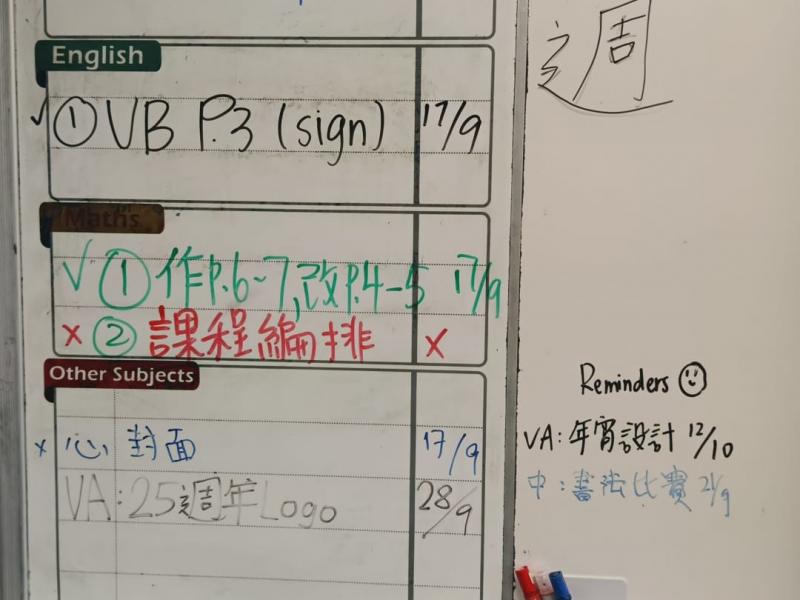 週
English
✓ ① VB P.3 (sign) 17/9
Maths
✓ ① 作P.6-7, 改P.4-5 17/9
× ② 課程編排 ×
Other Subjects
× 心 封面 17/9
VA: 25週年Logo 28/9
Reminders ☺
VA: 年宵設計 12/10
中: 書法比賽 21/9